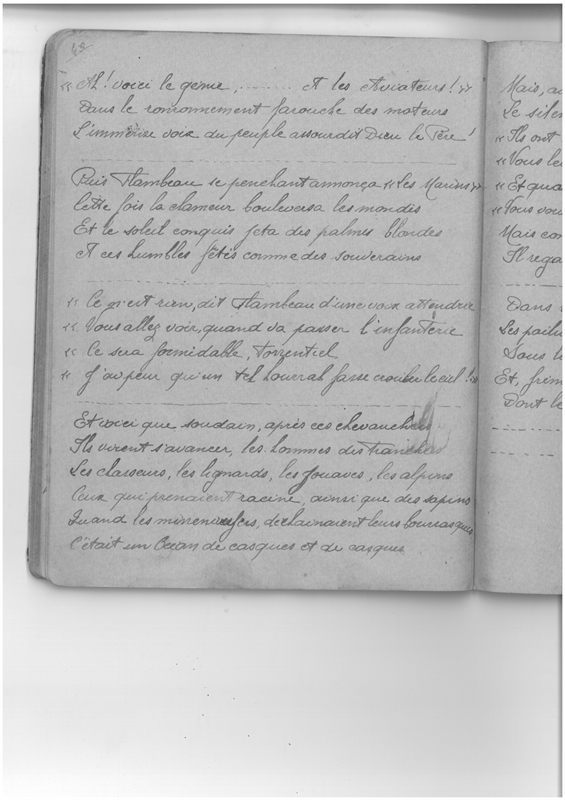 48
« Ah ! voici le génie, ........ Et les Aviateurs ! »
Dans le ronronnement farouche des moteurs
L'immense voix du peuple assourdit Dieu le Père !
Puis Flambeau se penchant annonça « Les Marins »
Cette fois la clameur bouleversa les mondes
Et le soleil conquis jeta des palmes blondes
A ces humbles fêtés comme des souverains
« Ce n'est rien, dit Flambeau d'une voix attendrie
« Vous allez voir, quand va passer l'infanterie
« Ce sera formidable, torrentiel
« J'ai peur qu'un tel hourrah fasse crouler le ciel ! »
Et voici que soudain, après ces chevauchées
Ils virent s'avancer, les hommes des tranchées
Les chasseurs, les lignards, les zouaves, les alpins
Ceux qui prenaient racine, ainsi que des sapins
Quand les minenwerfers, déchainaient leurs bourrasques
C'était un Océan de casques et de casques
Mais, au
Le silen
« Ils ont
« Vous le
« Et qua
« Vous vou
Mais com
Il rega
Dans
Les poilu
Sous l
Et, frém
Dont le